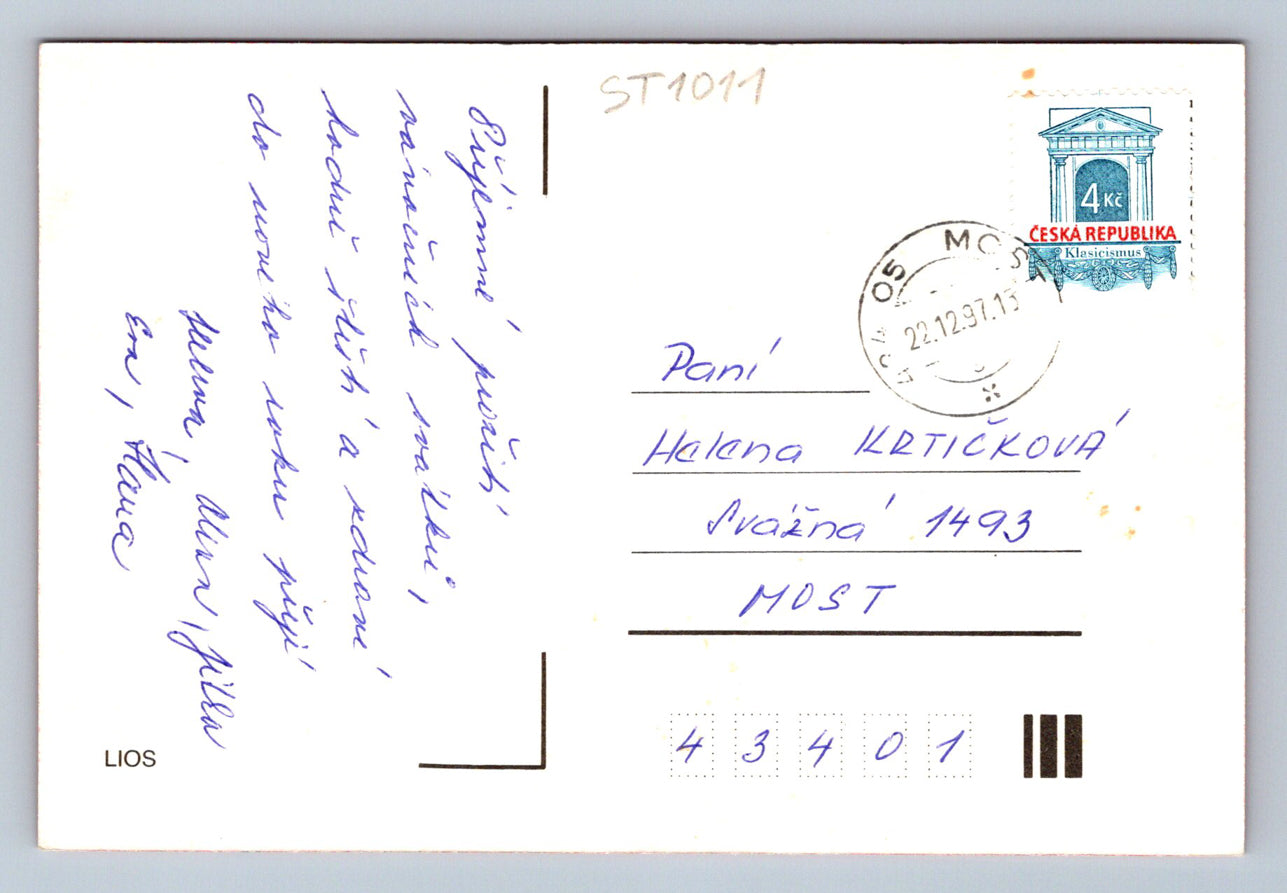 ST1011
Příjemné prožití
vánočních svátků,
hodně štěstí a zdraví
do nového roku přejí
Helena, Alena, Jitka
Eva, Hana
4 Kč
ČESKÁ REPUBLIKA
Klasicismus
05 MOST
22.12.97.13
Paní
Helena KRTIČKOVÁ
Svážná 1493
MOST
43401
LIOS